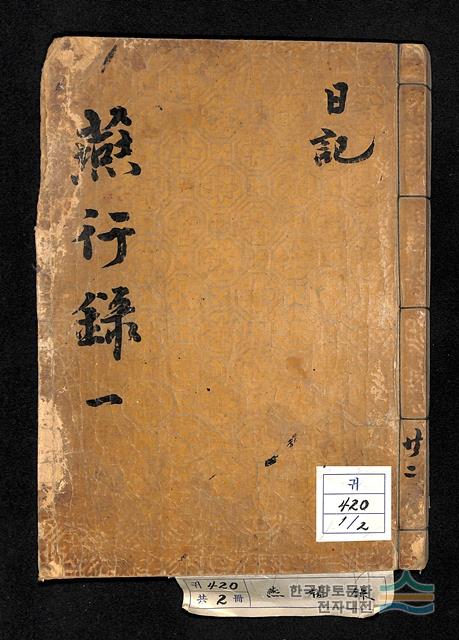 日記
燕行錄 一
二
귀
420
1/2
귀 420
共 2 冊
한국향토문화
전자대전